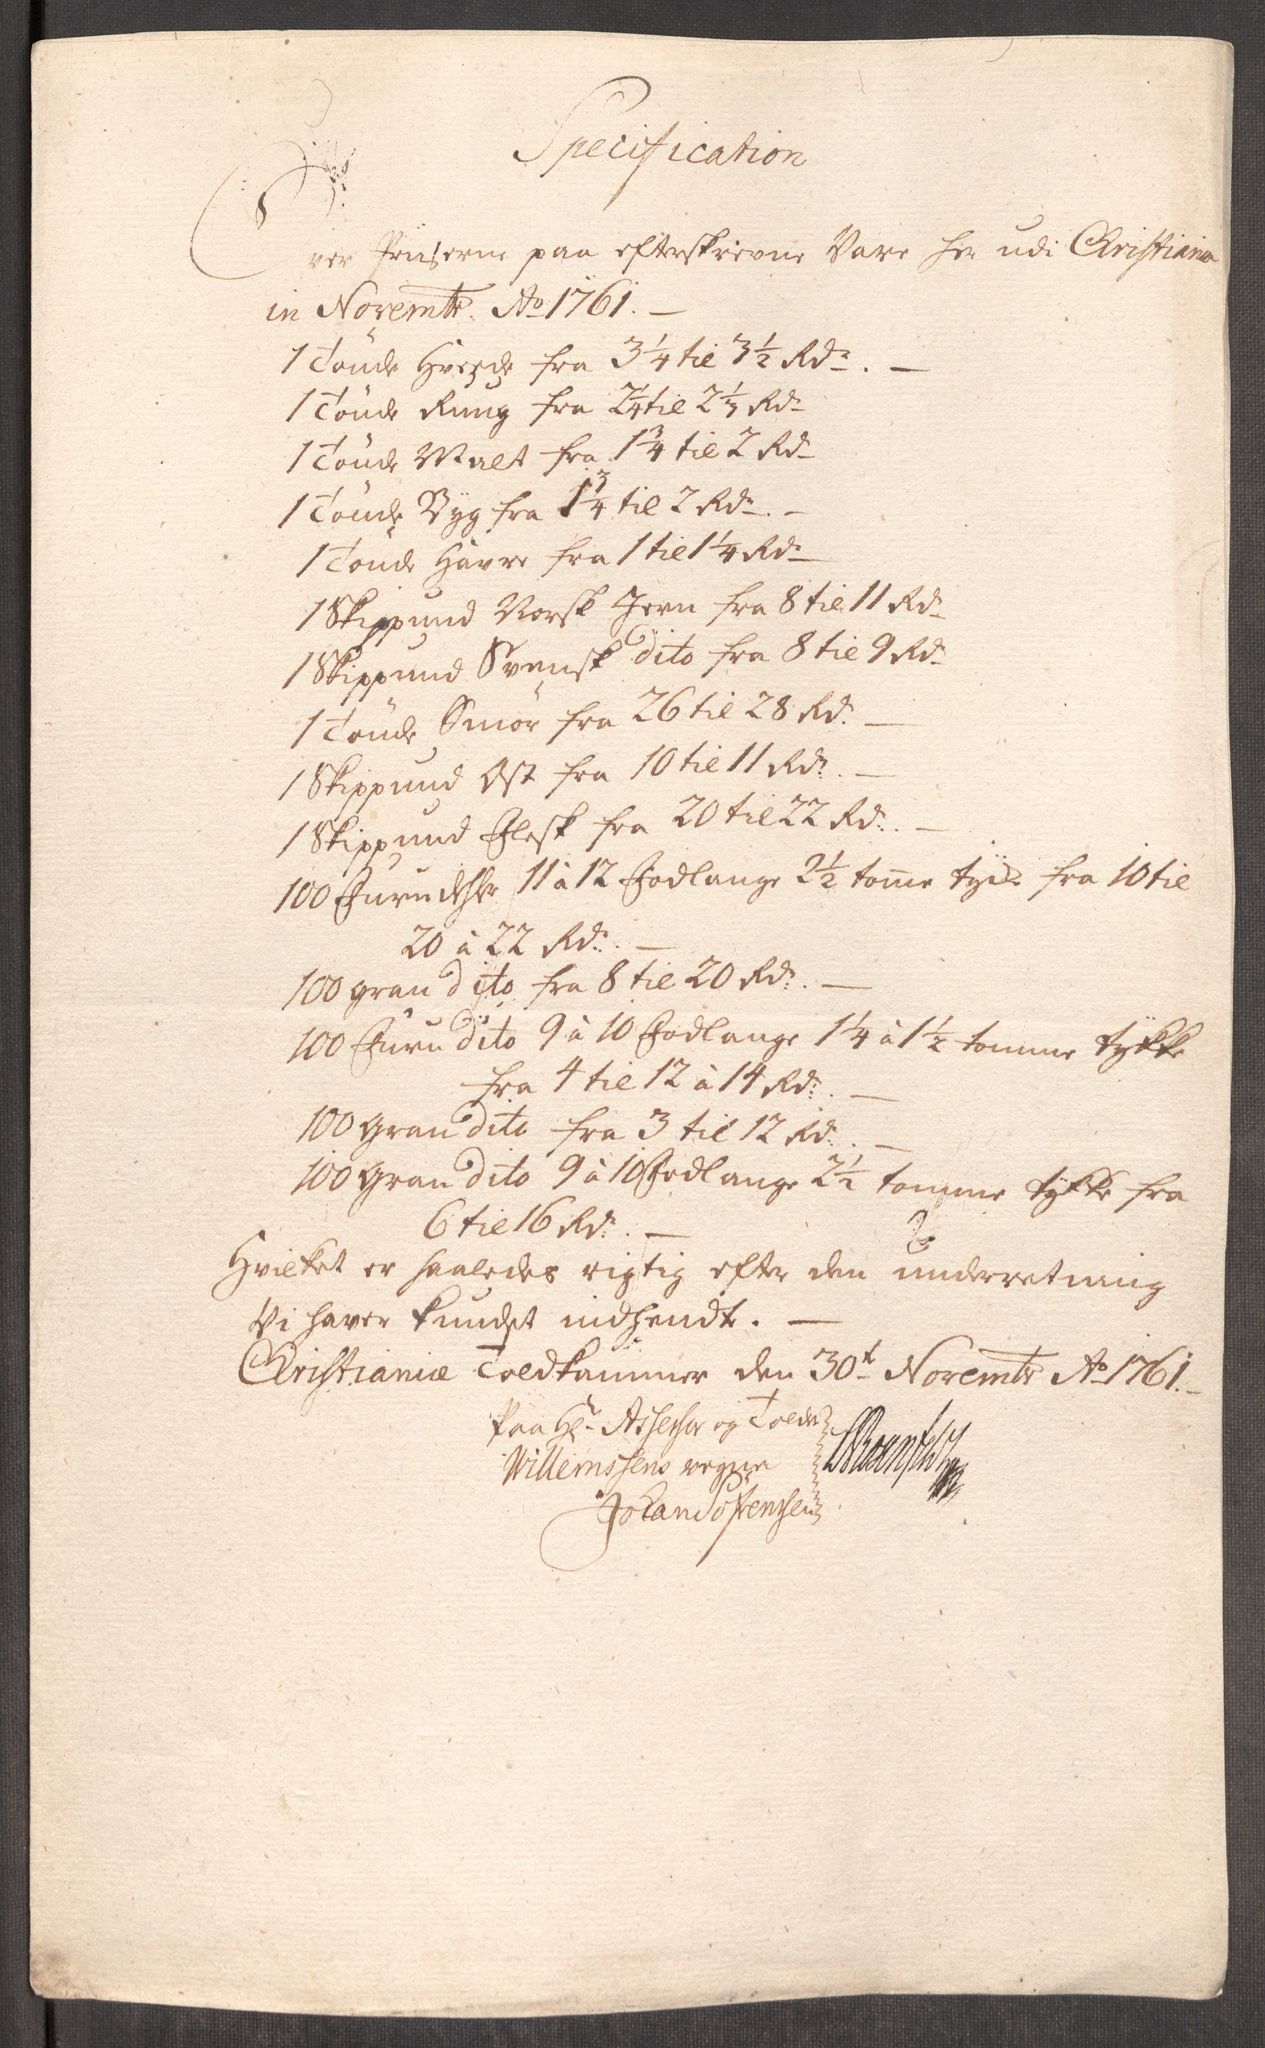 Specification
Over Priiserne paa efterskrevne Vare her udi Christiania
in Novembr. Ao 1761. —
1 Tönde Hvede fra 3 1/4 til 3 1/2 Rdr. —
1 Tönde Rúug fra 2 1/4 til 2 1/3 Rdr
1 Tönde Malt fra 1 3/4 til 2 Rdr
1 Tönde Byg fra 1 3/4 til 2 Rdr. —
1 Tönde Havre fra 1 til 1 1/4 Rdr
1 Skippund Norsk Jern fra 8 til 11 Rdr
1 Skippund Svensk dito fra 8 til 9 Rdr
1 Tönde Smör fra 26 til 28 Rdr. —
1 Skippund Ost fra 10 til 11 Rdr. —
1 Skippund Flesk fra 20 til 22 Rdr. —
100 Furu dehler 11 à 12 Fodlange 2 1/2 tome tyk fra 10 til
20 à 22 Rdr. —
100 gran dito fra 8 til 20 Rdr. —
100 Furu dito 9 à 10 Fodlange 1 1/4 à 1 1/2 tomme tykke
fra 4 til 12 à 14 Rdr. —
100 gran dito fra 3 til 12 Rdr. —
100 Gran dito 9 à 10 Fodlange 2 1/2 tomme tykke fra
6 til 16 Rdr. —
Hvilket er saaledes rigtig efter den underretning
Vi haver kundet indhendte. —
Christianiæ Toldkammer den 30t Novembr Ao 1761. —
Paa Hr. Assessor og Tolder
Willemssens vegne
Johan Sörensen